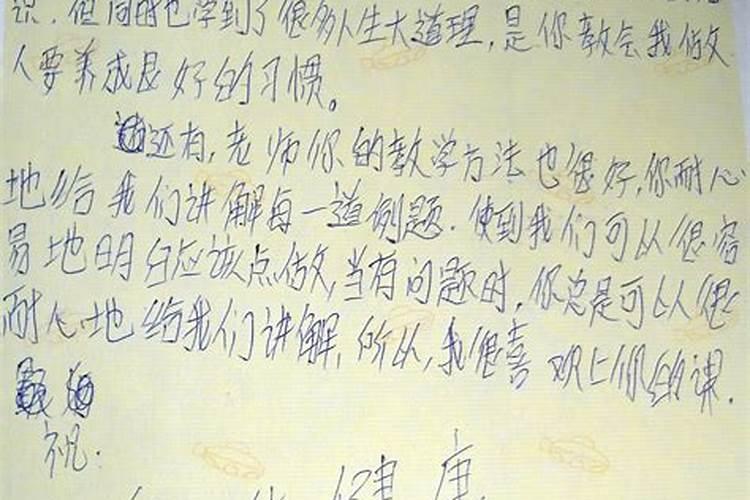 识，但同时也学到了很多人生大道理，是你教会我做
人要养成良好的习惯。
还有，老师你的教学方法也很好，你耐心
地给我们讲解每一道例题．使到我们可以很容
易地明白应该点做，当有问题时，你总是可以很
耐心地给我们讲解，所以，我很喜欢上你的课．
祝：
健康